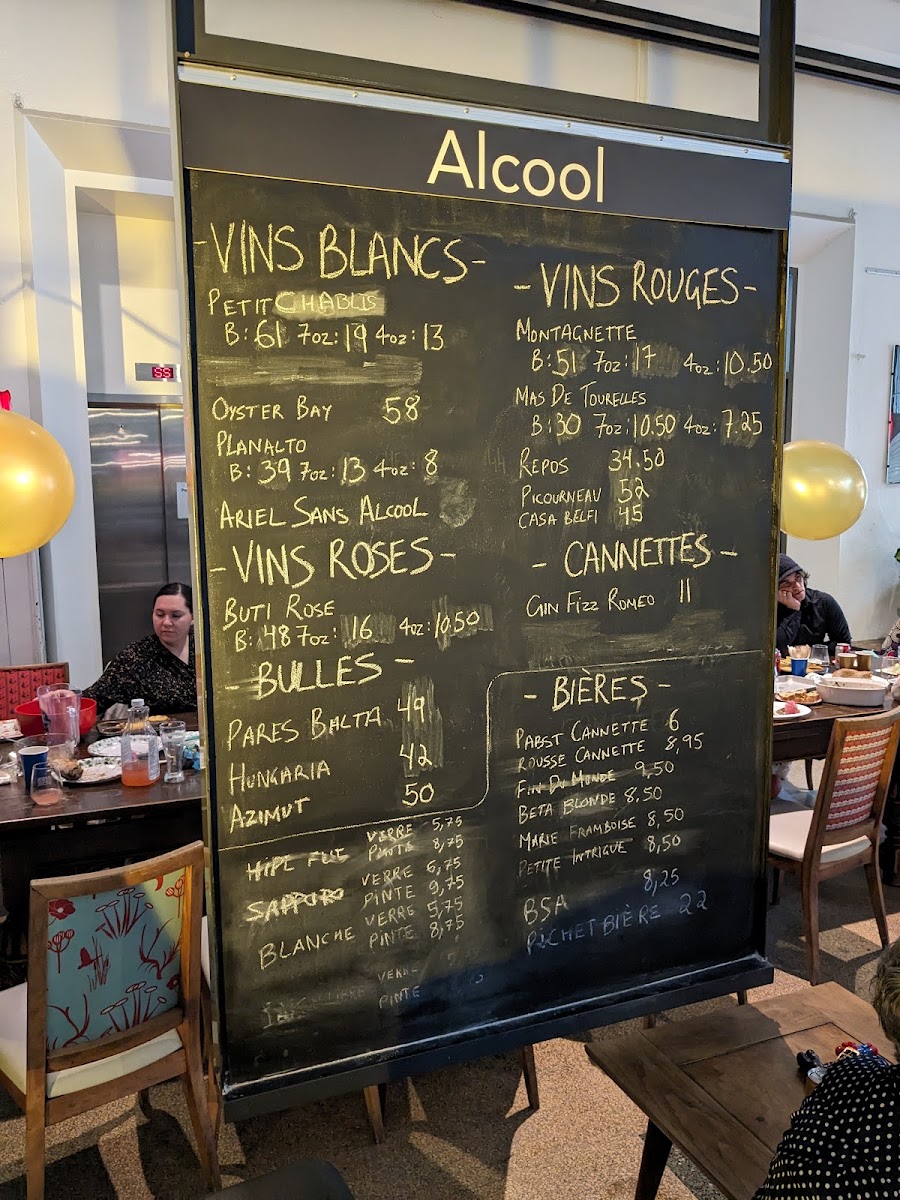 Alcool
-VINS BLANCS-
PETIT CHABLIS
B: 61 7oz: 19 4oz: 13
OYSTER BAY 58
PLANALTO
B: 39 7oz: 13 4oz: 8
ARIEL SANS ALCOOL
-VINS ROSES-
BUTI ROSE
B: 48 7oz: 16 4oz: 10.50
-BULLES-
PARES BALTA 49
HUNGARIA 42
AZIMUT 50
VERRE 5,75
PINTE 8,75
SAPPORO VERRE 6,75
PINTE 9,75
BLANCHE VERRE 5,75
PINTE 8,75
VERRE
PINTE
-VINS ROUGES-
MONTAGNETTE
B: 51 7oz: 17 4oz: 10.50
MAS DE TOURELLES
B: 30 7oz: 10.50 4oz: 7.25
REPOS 34.50
PICOURNEAU 52
CASA BELFI 45
-CANNETTES-
GIN FIZZ ROMEO 11
-BIÈRES-
PABST CANNETTE 6
ROUSSE CANNETTE 8,95
FIN DU MONDE 9,50
BETA BLONDE 8,50
MARIE FRAMBOISE 8,50
PETITE INTRIGUE 8,50
BSA 8,25
PICHET BIÈRE 22